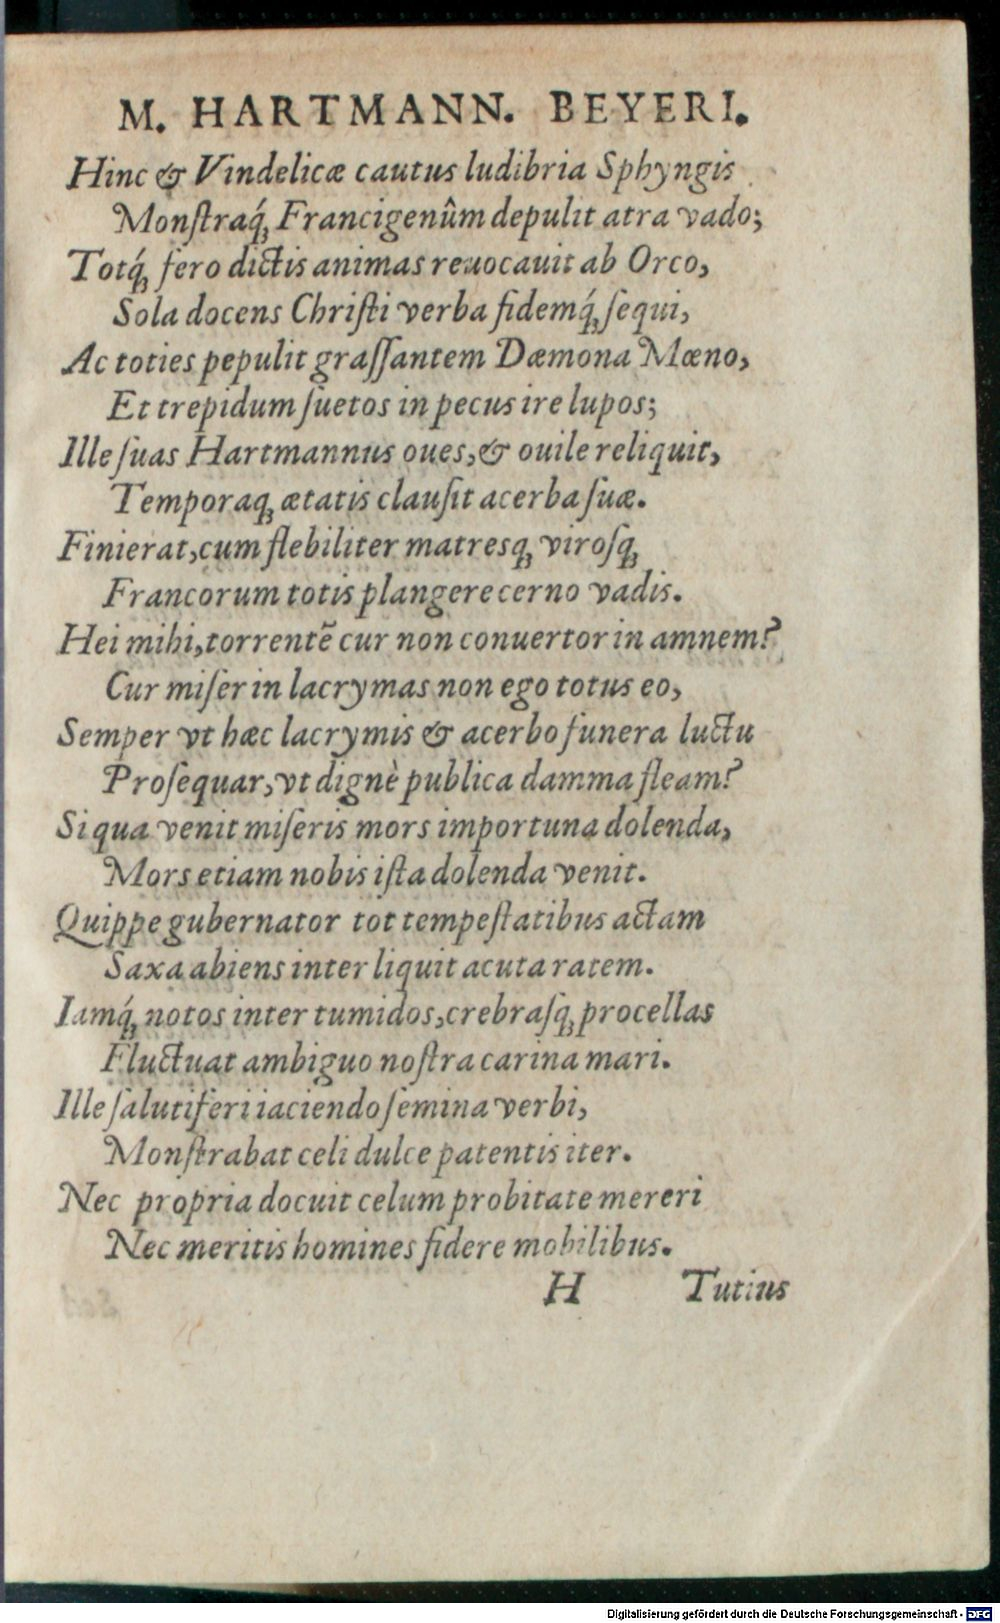 M. HARTMANN. BEYERI.
Hinc & Vindelicæ cautus ludibria Sphyngis
Monſtraq́; Francigenûm depulit atra vado;
Totq́; fero dictis animas reuocauit ab Orco,
Sola docens Chriſti verba fidemq́; ſequi,
Ac toties pepulit graſſantem Dæmona Mœno,
Et trepidum ſuetos in pecus ire lupos;
Ille ſuas Hartmannus oues, & ouile reliquit,
Temporaq; ætatis clauſit acerba ſuæ.
Finierat, cum flebiliter matresq; viroſq;
Francorum totis plangere cerno vadis.
Hei mihi, torrentē cur non conuertor in amnem?
Cur miſer in lacrymas non ego totus eo,
Semper vt hæc lacrymis & acerbo funera luctu
Proſequar, vt dignè publica damma fleam?
Si qua venit miſeris mors importuna dolenda,
Mors etiam nobis iſta dolenda venit.
Quippe gubernator tot tempeſtatibus actam
Saxa abiens inter liquit acuta ratem.
Iamq́; notos inter tumidos, crebraſq; procellas
Fluctuat ambiguo noſtra carina mari.
Ille ſalutiferi iaciendo ſemina verbi,
Monſtrabat celi dulce patentis iter.
Nec propria docuit celum probitate mereri
Nec meritis homines fidere mobilibus.
H Tutius
Digitalisierung gefördert durch die Deutsche Forschungsgemeinschaft - DFG